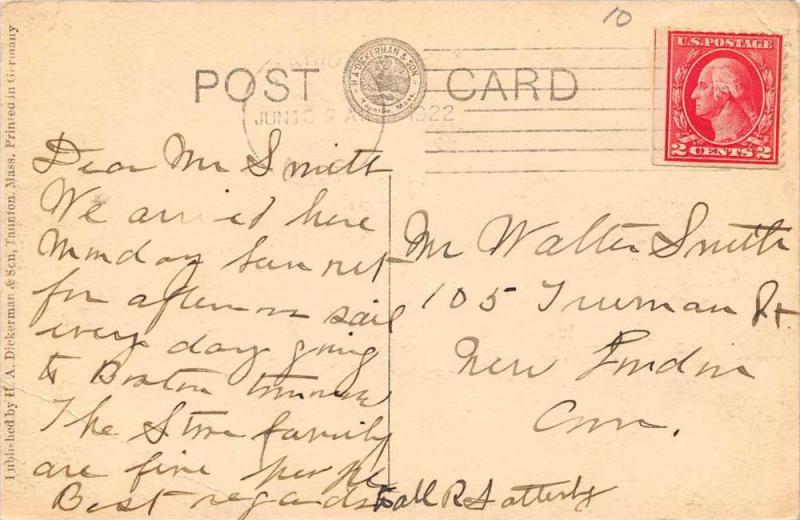 10
U.S. POSTAGE
2 CENTS 2
POST CARD
H.A. DICKERMAN & SON
Taunton, Mass.
JUN 10 9 A 1922
Published by H. A. Dickerman & Son, Taunton, Mass. Printed in Germany
Dear Mr Smith
We arrived here
Monday
for afternoon sail
every day going
to Boston
The Stone family
are fine people
Best regards to all R Satterly
Mr Walter Smith
105 Truman St
New London
Conn.